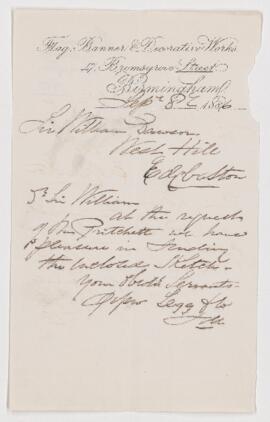 Flag, Banner & Decorative Works
Bromsgrove Street
Birmingham
Sept 8th 1886
Sir William Dawson
West Hill
Edgbaston
Dr Sir William
at the request
of Mr Pritchett we have
pleasure in sending
the inclosed Sketch.
Your Obedt Servants
Legg & Co